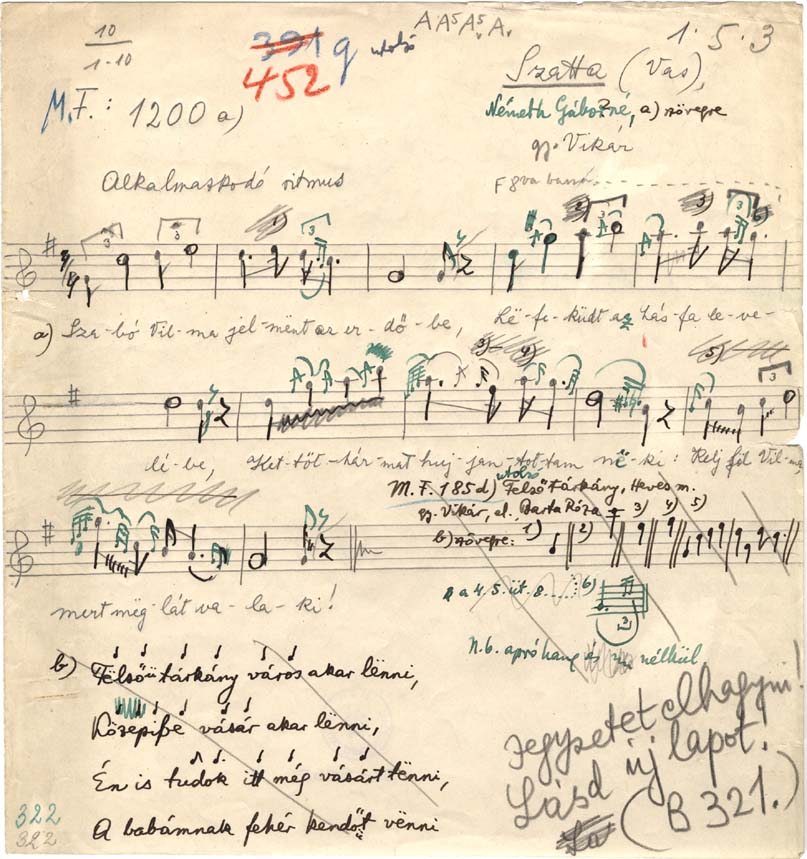 10
1-10
391 q utolsó
452
A A5 A5 A
1 . 5 . 3
Szatta (Vas),
M.F.: 1200 a)
Németh Gáborné, a) szövegre
gy. Vikár
Alkalmazkodó ritmus
F 8va bassa
a) Sza-bó Vil-ma jel-mënt az er-dő-be, Lë-fe-küdt az hás-fa le-ve-
lé-be, Ket-töt-hár-mat huj-jan-tot-tam në-ki: Kelj föl Vil-ma,
M.F. 185 d) utolsó Felső Tárkány, Heves m.
gy. Vikár, el. Barta Róza
b) szövegre: 1) 2) 3) 4) 5)
mert mëg-lát va-la-ki!
a 4. 5. üt. 8 6)
n.b. apró hang és nélkül
b) Felsőtárkány város akar lënni,
Közepibe vásár akar lënni,
Én is tudok itt még vásárt tënni,
A babámnak fehér kendőt vënni
Jegyzetet elhagyni!
Lásd új lapot!
(B 321.)
322
322